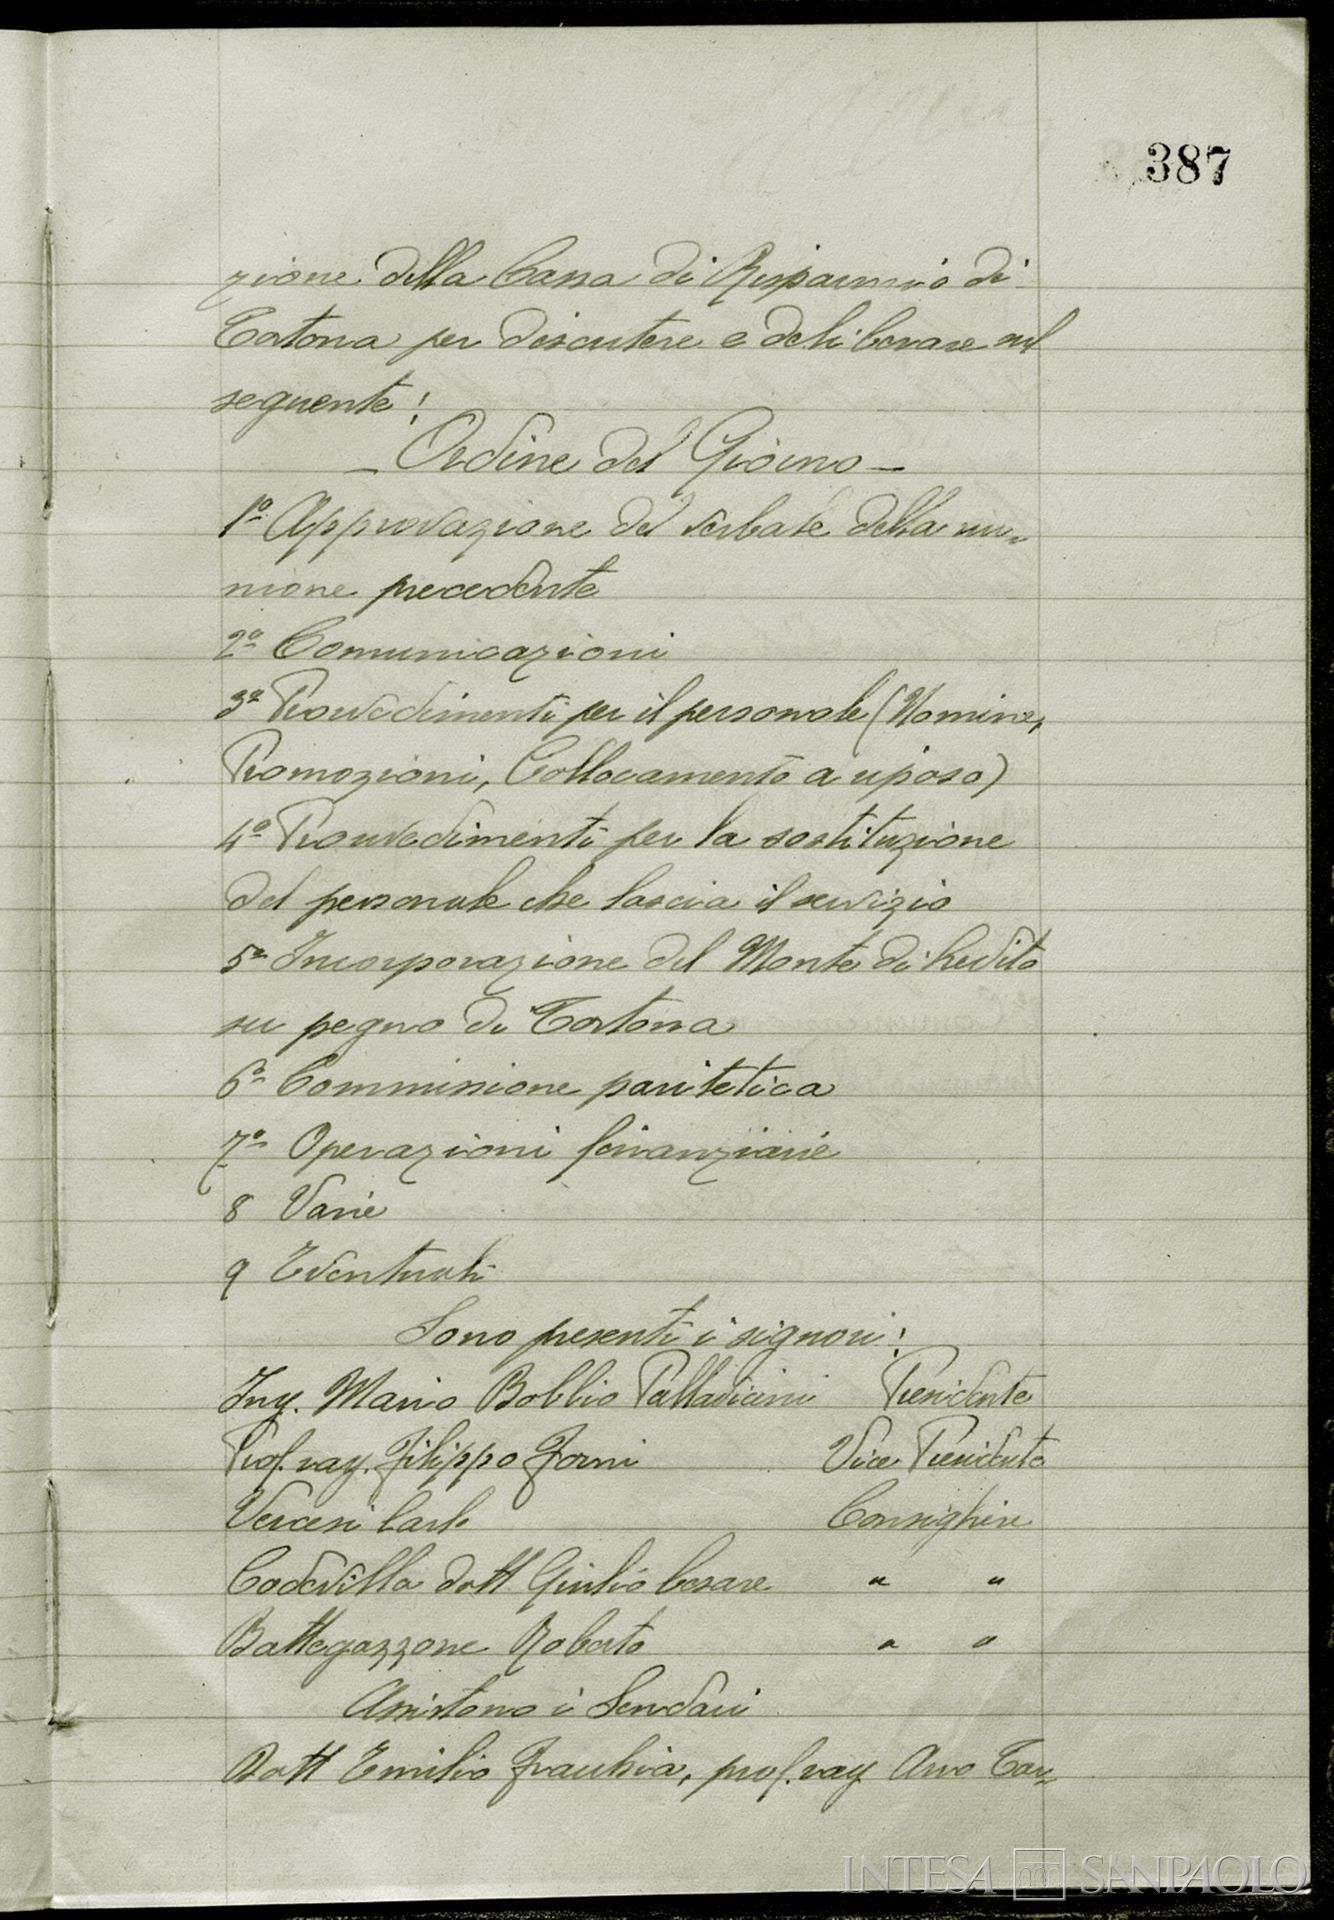 387
zione della Cassa di Risparmio di
Tortona per discutere e deliberare sul
seguente:
- Ordine del Giorno -
1º Approvazione del verbale della riu=
nione precedente
2º Comunicazioni
3º Provvedimenti per il personale (Nomine,
Promozioni, Collocamento a riposo)
4º Provvedimenti per la sostituzione
del personale che lascia il servizio
5º Incorporazione del Monte di Credito
su pegno di Tortona
6º Commissione paritetica
7º Operazioni finanziarie
8 Varie
9 Eventuali
Sono presenti i signori:
Ing. Mario Bobbio Pallavicini Presidente
Prof. rag. Filippo Forni Vice Presidente
Vercesi Carlo Consigliere
Codevilla dott Giulio Cesare " "
Battegazzone Roberto " "
Assistono i Sindaci
Dott Emilio Frachia, prof. rag. Arvo Tar=
INTESA SANPAOLO